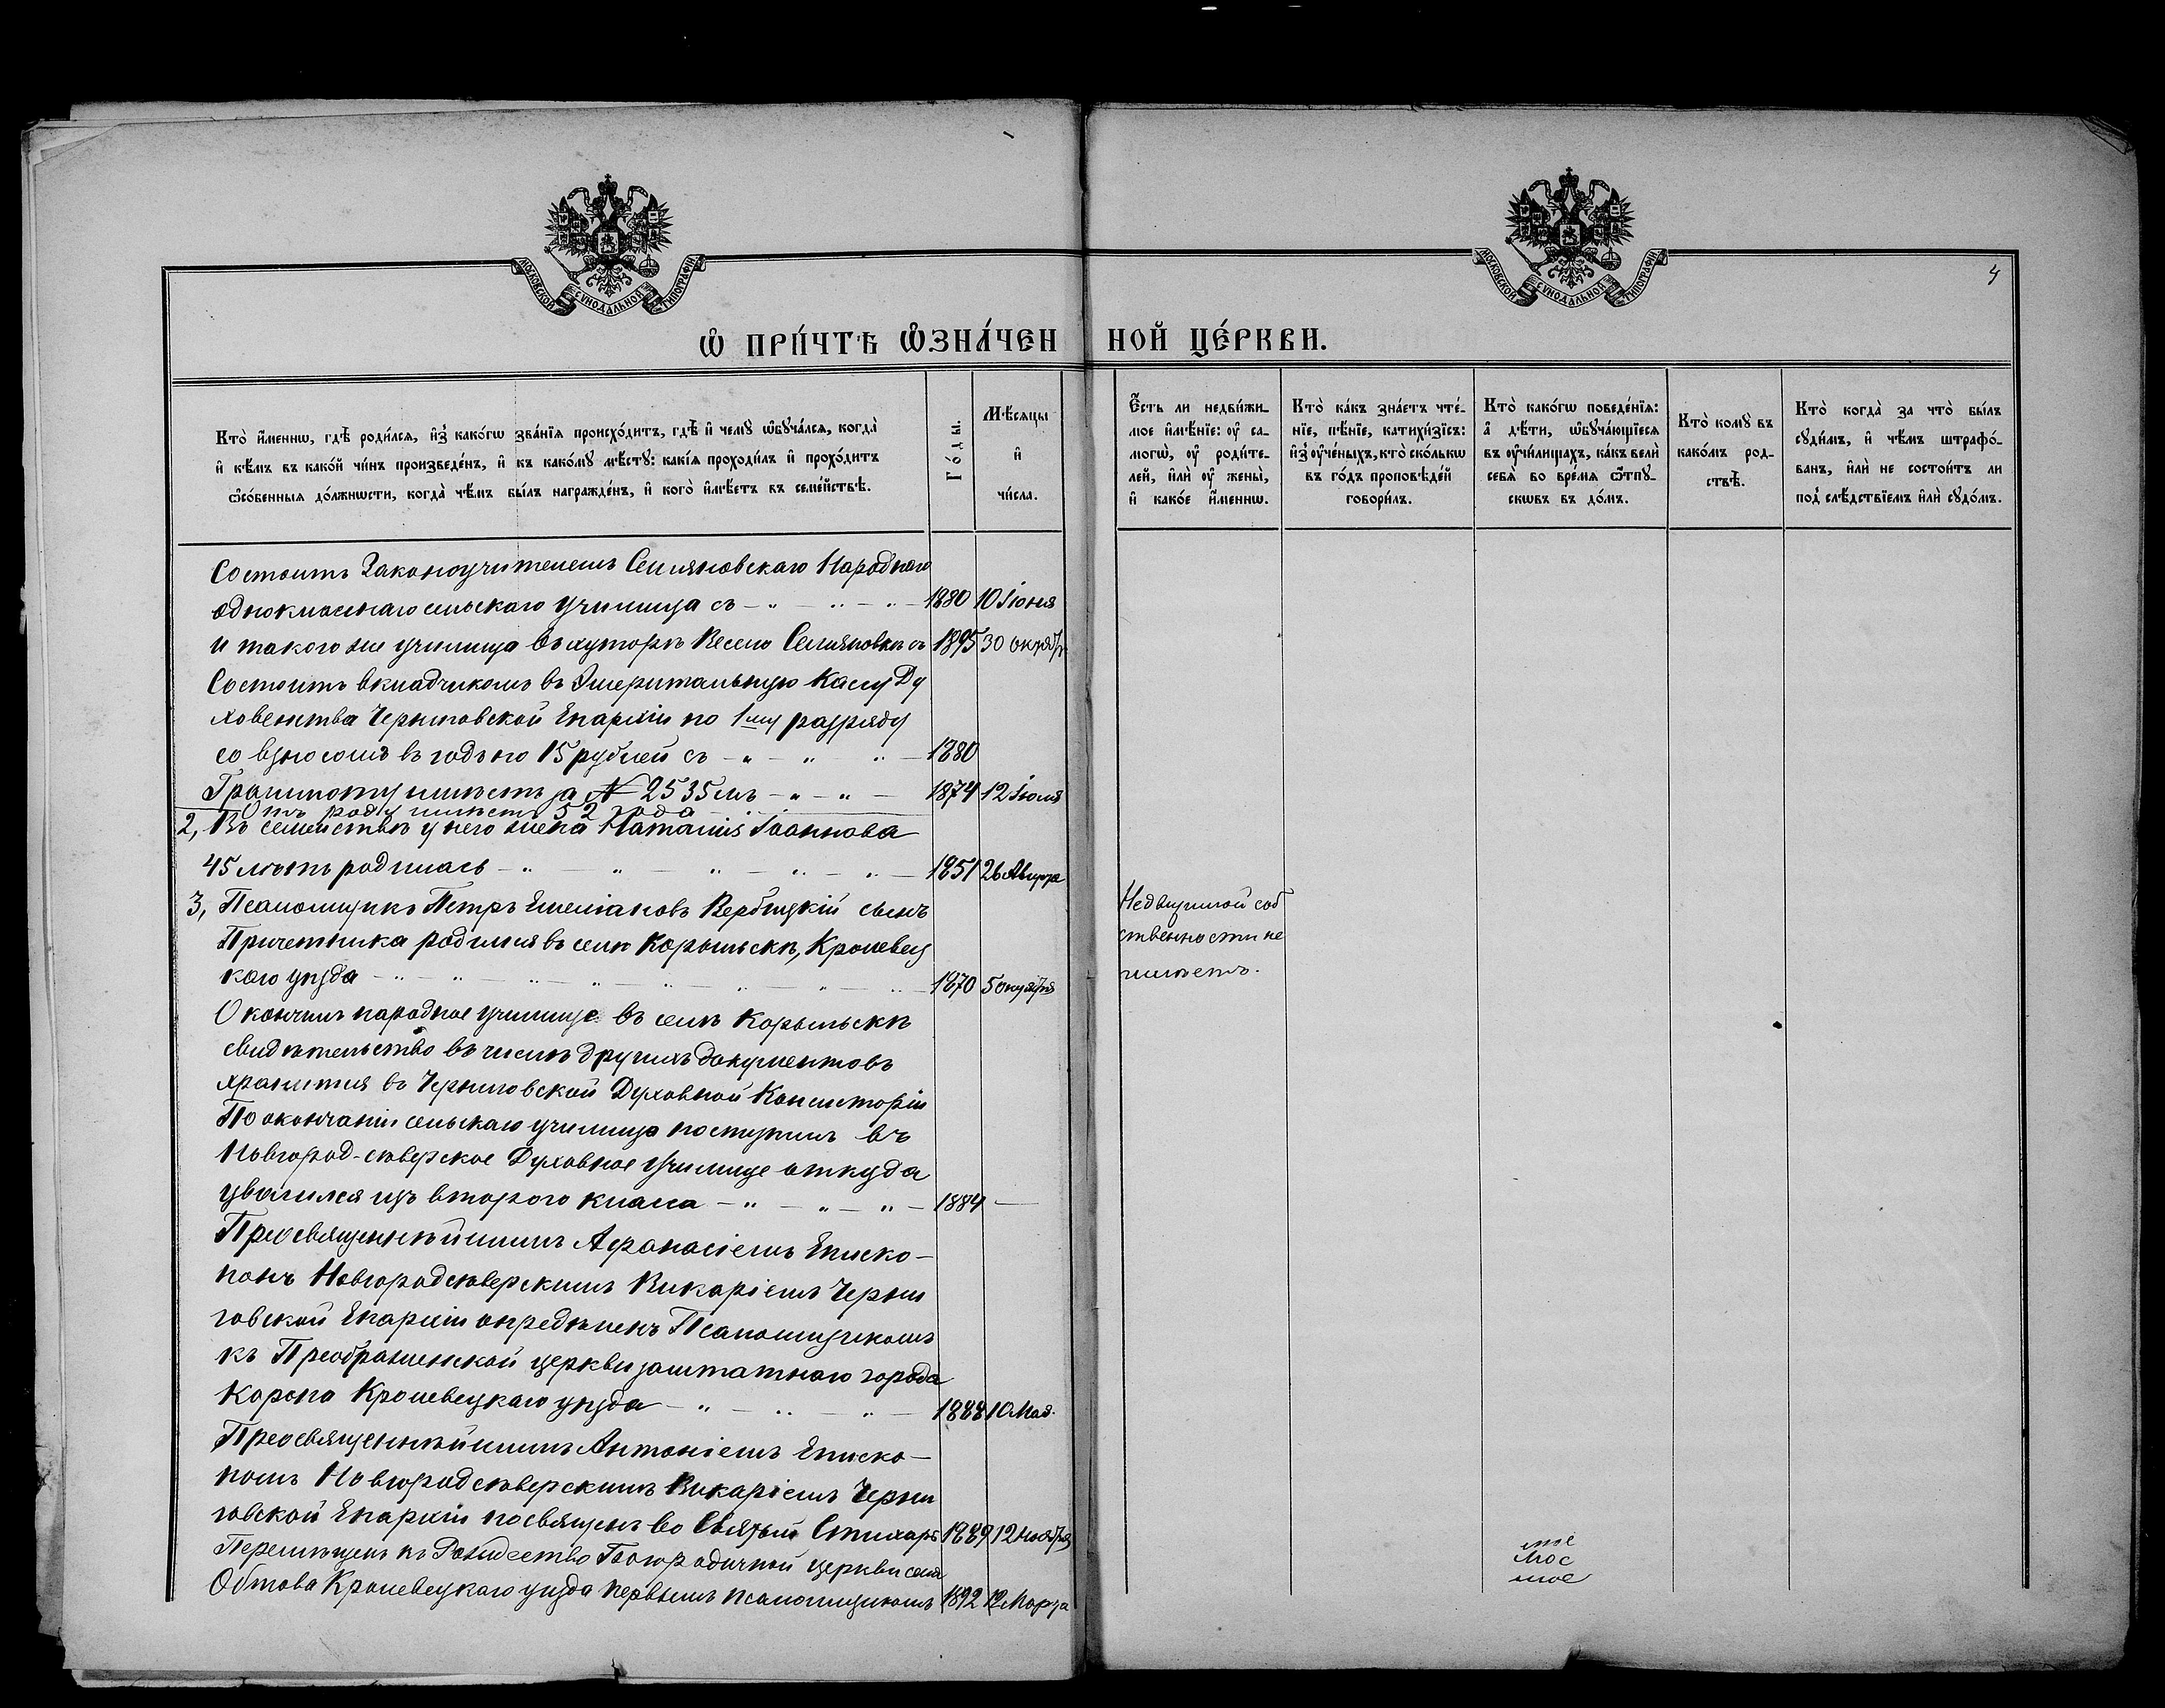 МОСКОВСКОЙ СѴНОДАЛЬНОЙ ТИПОГРАФІИ
МОСКОВСКОЙ СѴНОДАЛЬНОЙ ТИПОГРАФІИ
4
Ѡ ПРИ́ЧТѢ ѠЗНА́ЧЕННОЙ ЦЕ́РКВИ.
Кто̀ и҆́меннѡ, гдѣ̀ роди́лсѧ, и҆з̾ како́гѡ зва́нїѧ происхо́дитъ, гдѣ̀ и҆ чемꙋ̀ ѡ҆бꙋча́лсѧ, когда̀
и҆ кѣ́мъ въ како́й чи́нъ произведе́нъ, и҆ къ како́мꙋ мѣ́стꙋ: какі́ѧ проходи́лъ и҆ прохо́дитъ
ѻ҆со́бенныѧ до́лжнѡсти, когда̀ чѣ́мъ бы́лъ награжде́нъ, и҆ кого̀ и҆мѣ́етъ въ семе́йствѣ.
Го́ды.
Мѣ́сѧцы
и҆
чи́сла.
Є҆́сть ли недви́жи-
мое и҆мѣ́нїе: ᲂу҆ са-
могѡ̀, ᲂу҆ роди́те-
лей, и҆лѝ ᲂу҆ жены̀,
и҆ како́е и҆́меннѡ.
Кто̀ ка́къ зна́етъ чте́-
нїе, пѣ́нїе, катихи́зїсъ:
и҆з̾ ᲂу҆че́ныхъ, кто̀ ско́лькѡ
въ го́дъ проповѣ́дей
говори́лъ.
Кто̀ како́гѡ поведе́нїѧ:
а҆ дѣ́ти, ѡ҆бꙋча́ющїесѧ
въ ᲂу҆чи́лищахъ, ка́къ велѝ
себѧ̀ во вре́мѧ ѿпꙋ-
скѡвъ въ до́мъ.
Кто̀ комꙋ̀ въ
како́мъ род-
ствѣ̀.
Кто̀ когда̀ за что̀ бы́лъ
сꙋди́мъ, и҆ чѣ́мъ штрафо́-
ванъ, и҆лѝ не состои́тъ ли
под̾ слѣ́дствїемъ и҆лѝ сꙋдо́мъ.
Состоитъ Законоучителемъ Семяновскаго Народнаго
однокласнаго сельскаго училища съ – „ – „ – „ – 1880 10 Іюня
и такого же училища въ хуторѣ Весело Семяновкѣ съ 1895 30 октяб
Состоитъ вкладчикомъ въ Эмеритальную Кассу Ду
ховенства Черниговской Епархіи по 1му разряду
со взносомъ въ годъ по 15 рублей съ – „ – „ „ – 1880
Грамматту имѣетъ за № 2535мъ – „ – „ – 1874 12 Іюля
Отъ роду имѣетъ 52 года
2, Въ семействѣ у него жена Наталія Іоаннова
45 лѣтъ родилась – „ – „ – „ – „ – „ – 1851 26 Августа
3, Псаломщикъ Петръ Емеліановъ Вербицкій сынъ
Причетника родился въ селѣ Корыльскѣ, Кролевец
каго уѣзда – „ – „ – „ – „ – „ – „ – „ – 1870 5 октября
Недвижимой соб
ственности не
имѣетъ.
Окончилъ народное училище въ селѣ Корыльскѣ
свидѣтельство въ числѣ другихъ документовъ
хранится въ Черниговской Духовной Консисторіи
По окончаніи сельскаго училища поступилъ въ
Новгород-сѣверское Духовное училище откуда
уволился изъ второго класса – „ – „ – „ – 1884 –
Преосвященнѣйшимъ Афанасіемъ Еписко-
помъ Новгородсѣверскимъ Викаріемъ Черни
говской Епархіи опредѣленъ Псаломщикомъ
къ Преображенской церкви заштатнаго города
Коропа Кролевецкаго уѣзда – „ – „ – „ – 1888 10 Мая.
Преосвященнѣйшимъ Антоніемъ Еписко-
помъ Новгородсѣверскимъ Викаріемъ Черни
говской Епархіи посвященъ во Святый Стихарь 1889 12 Ноября
Перемѣщенъ къ Рождество Богородичной церкви села
Обтова Кролевецкаго уѣзда первымъ псаломщикомъ 1892 12 Марта